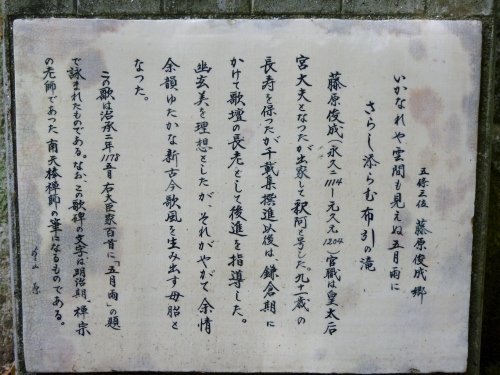 五條三位 藤原俊成卿
いかなれや雲間も見えぬ五月雨に
さらし添らむ布引の滝
藤原俊成(永久二1114―元久元1204)官職は皇太后
宮大夫となったが出家して釈阿と号した。九十一歳の
長寿を保ったが千載集撰進以後は、鎌倉期に
かけて歌壇の長老として後進を指導した。
幽玄美を理想としたが、それがやがて余情
余韻ゆたかな新古今歌風を生み出す母胎と
なった。
この歌は治承二年1178五月右大臣家百首に「五月雨」の題
で詠まれたものである。なお、この歌碑の文字は明治期、禅宗
の老師であった南天棒禅師の筆になるものである。